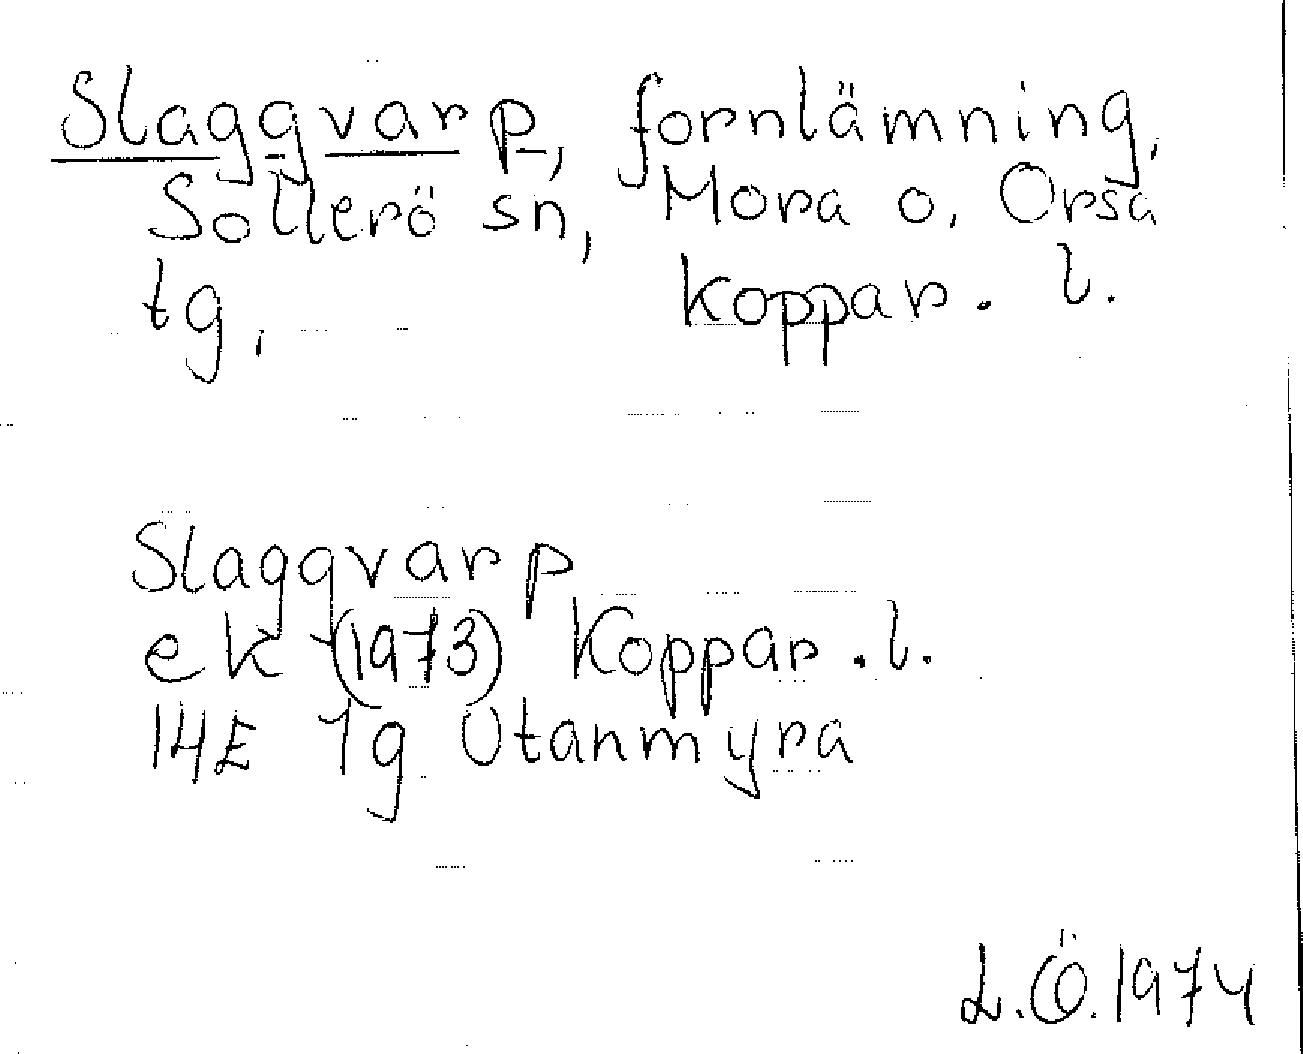 Slaggvarp, fornlämning,
Sollerö sn, Mora o. Orsa
tg. Koppar. l.
Slaggvarp
ek (1973) Koppar. l.
14E 1g Utanmyra
L.Ö. 1974